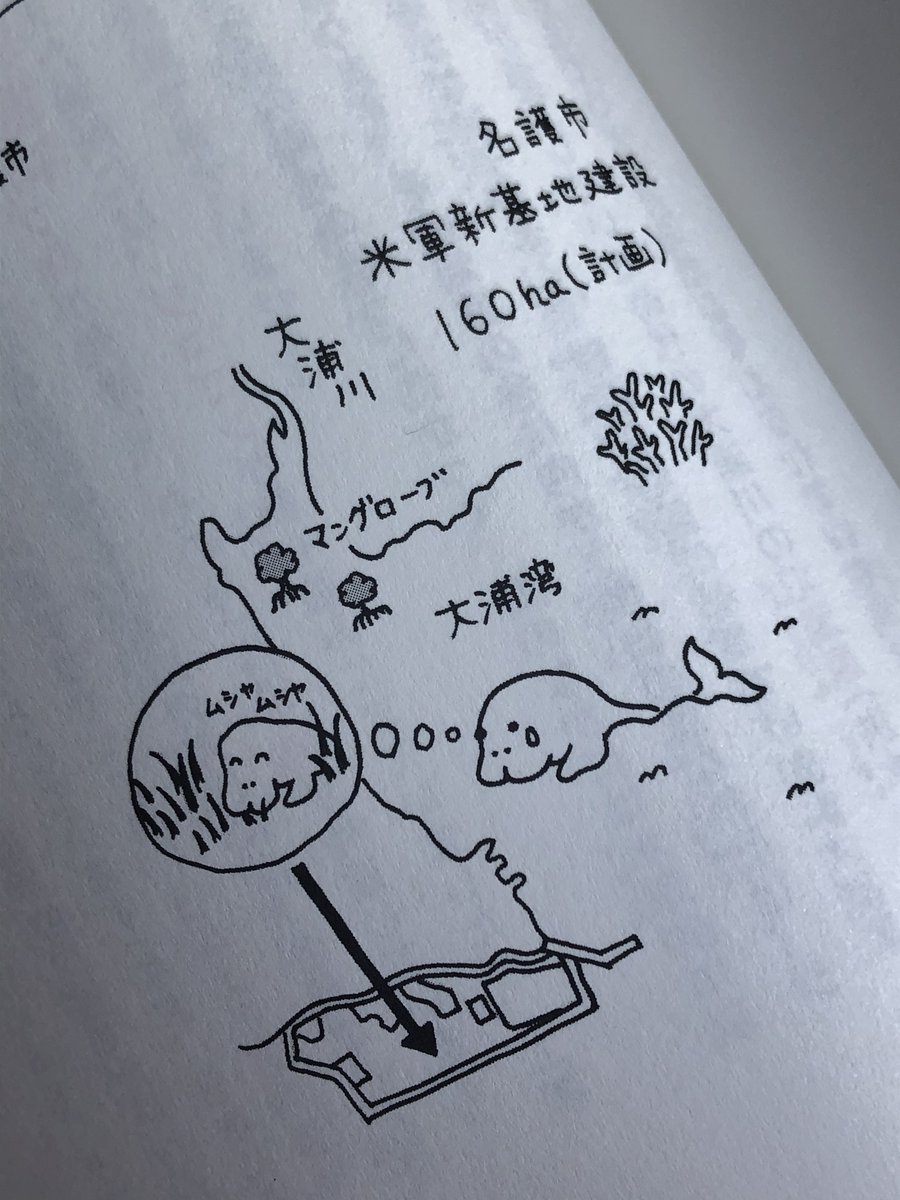 市
名護市
米軍新基地建設
160ha(計画)
大浦川
マングローブ
大浦湾
ムシャムシャ